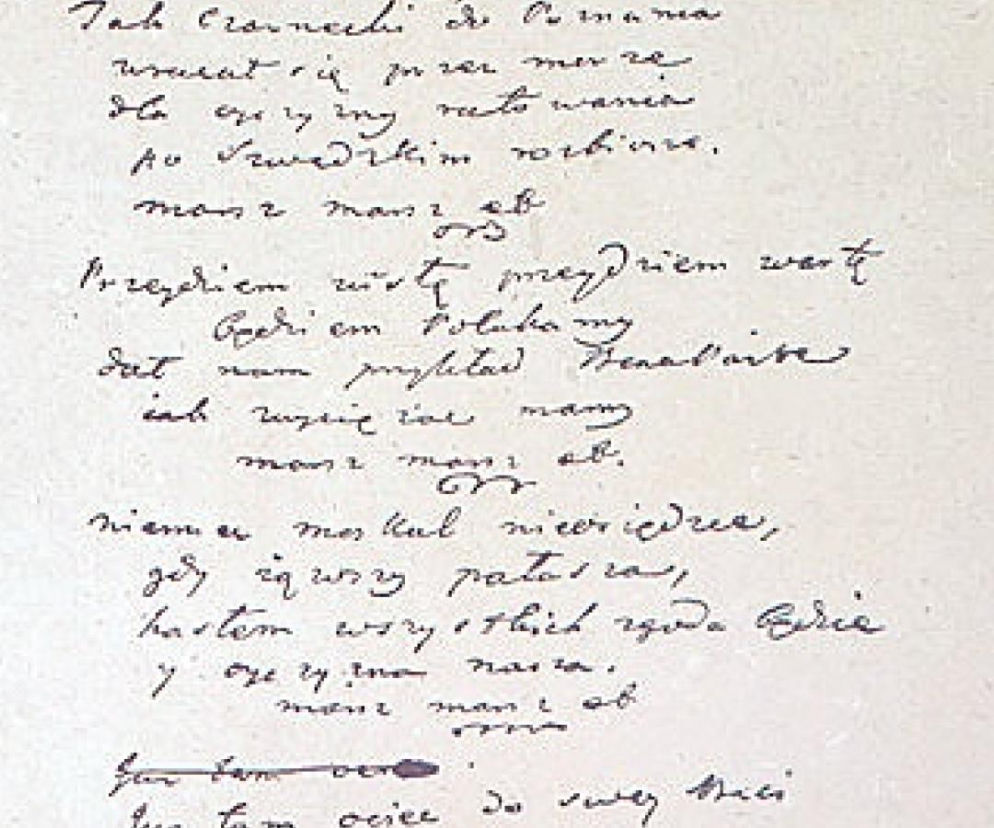 Jak Czarnecki do Poznania
wracał się przez morze
dla oyczyzny ratowania
po szwedzkim rozbiorze.
marsz marsz etc
Przeydziem wisłę przeydziem wartę
będziem Polakamy
dał nam przykład Bonaparte
iak zwyciężać mamy
marsz marsz etc.
niemiec moskal nieosiędzie,
gdy iąwszy pałasza,
hasłem wszystkich zgoda będzie
y oyczyzna nasza.
marsz marsz etc
Juz tam
Juz tam ociec do swey Basi